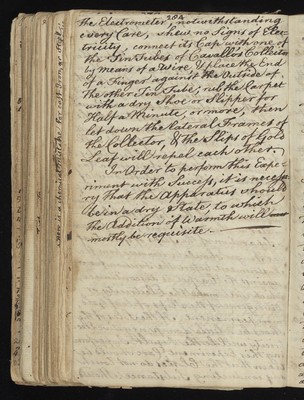 284
the Electrometer, notwithstanding
every Care, shew no Signs of Elec-
tricity, connect its Cap with one of
the Tin Tubes of Cavallo's Collector
by means of a Wire, & place the End
of a Finger against the Outside of
the other Tin Tube; rub the Carpet
with a dry Shoe or Slipper for
Half a Minute, or more, then
let down the lateral Frames of
the Collector, & the Slips of Gold
Leaf will repel each other.
In Order to perform this Expe-
riment with Success, it is necessa-
ry that the Apparatus should
be in a dry State, to which
the Addition of Warmth will
mostly be requisite.